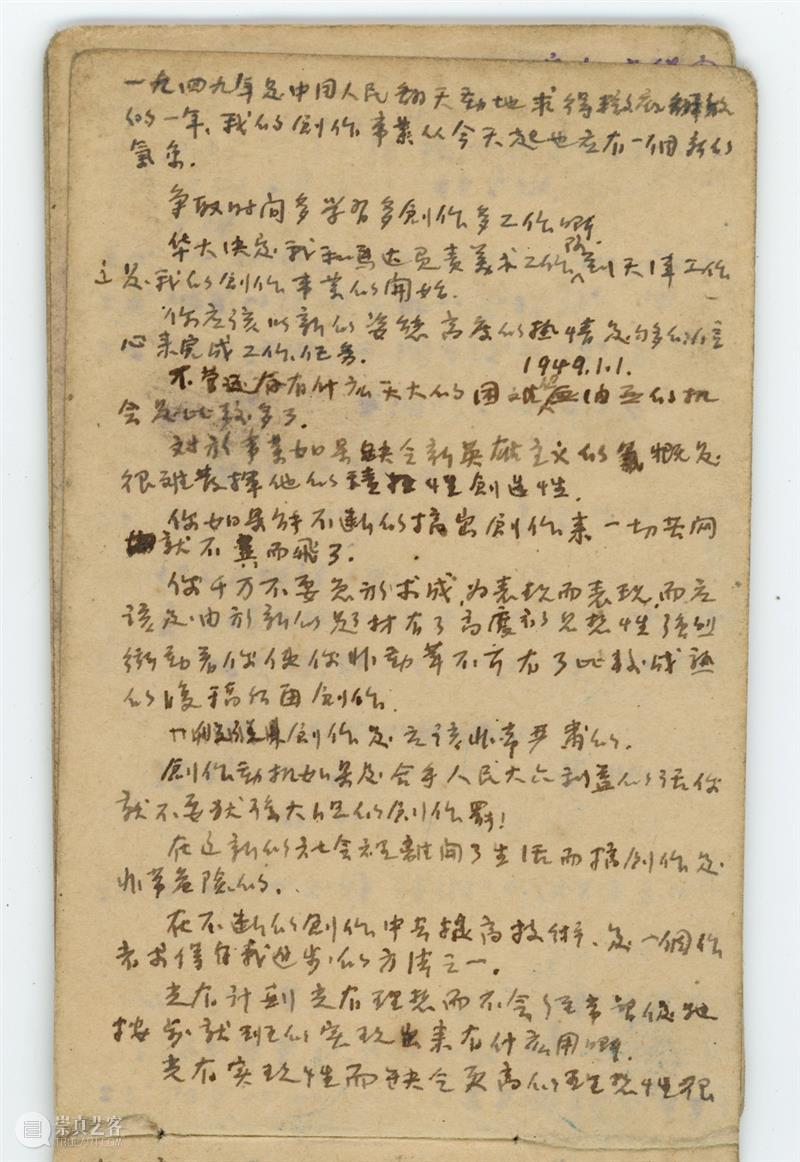 一九四九年是中国人民翻天动地求得彻底解放
的一年、我的創作事業从今天起也应有一個新的
氣象.
争取时间多学習多創作多工作啊.
华大决定我和馬达負責美术工作队到天津工作
这是我的創作事業的開始.
你应该以新的姿態高度的热情足够的信
心来完成工作任务.
1949.1.1.
不管还存有什広天大的困难
会是比較多了.
对於事業如果缺乏新英雄主义的氣概是
很难發揮他的積極性創造性.
你如果能不断的搞出創作来一切苦闷
就不翼而飛了.
你千万不要急於求成,为表现而表现,而应
该是由於新的题材有了高度的思想性強烈
衝動着你使你非动筆不可有了比较成熟
的腹稿然後再創作.
創作是应該非常严肅的.
創作动机如果是合乎人民大众利益的話你
就不要犹豫大胆的創作罢!
在这新的社会裡離開了生活而搞創作是
非常危險的.
在不断的創作中去提高技術、是一個作
者求得自我进步的方法之一.
光有计劃光有理想而不会经常督促地
按步就班的实现出来有什広用啊.
光有实现性而缺乏更高的理想性很
崇真艺客
TRUEART.COM